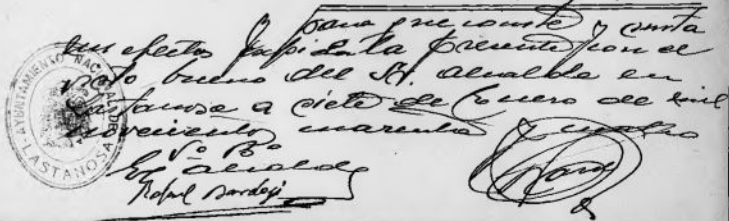 Y para que conste y surta
sus efectos expido la presente con el
visto bueno del Sr. Alcalde en
Lastanosa a siete de Enero de mil
novecientos cuarenta y cuatro
Vº Bº
El Alcalde
Rafael Bardaji
AYUNTAMIENTO NACIONAL DE LASTANOSA